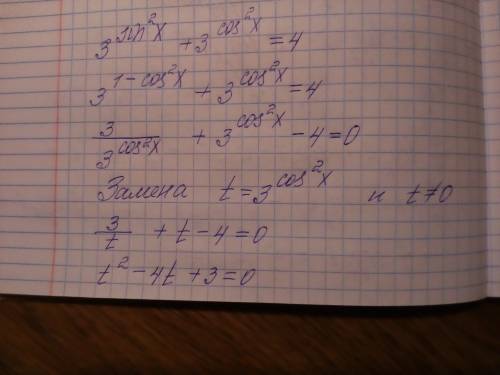 3^{sin^2x} + 3^{cos^2x} = 4
3^{1-cos^2x} + 3^{cos^2x} = 4
3/3^{cos^2x} + 3^{cos^2x} - 4 = 0
Замена t = 3^{cos^2x} и t ≠ 0
3/t + t - 4 = 0
t^2 - 4t + 3 = 0